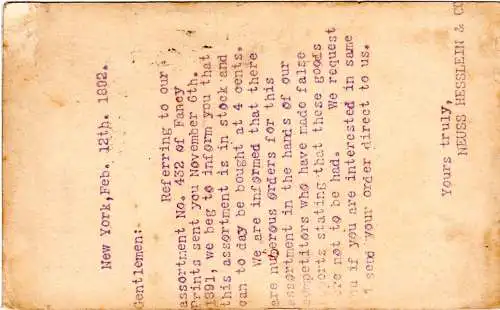 New York, Feb. 12th. 1892.
Gentlemen:-
Referring to our
assortment No. 432 of Fancy
Prints sent you November 6th.
1891, we beg to inform you that
this assortment is in stock and
can to day be bought at 4 cents.
We are informed that there
are numerous orders for this
assortment in the hands of our
competitors who have made false
reports stating that these goods
are not to be had. We request
if you are interested in same
send your order direct to us.
Yours truly,
NEUSS HESSLEIN & CO